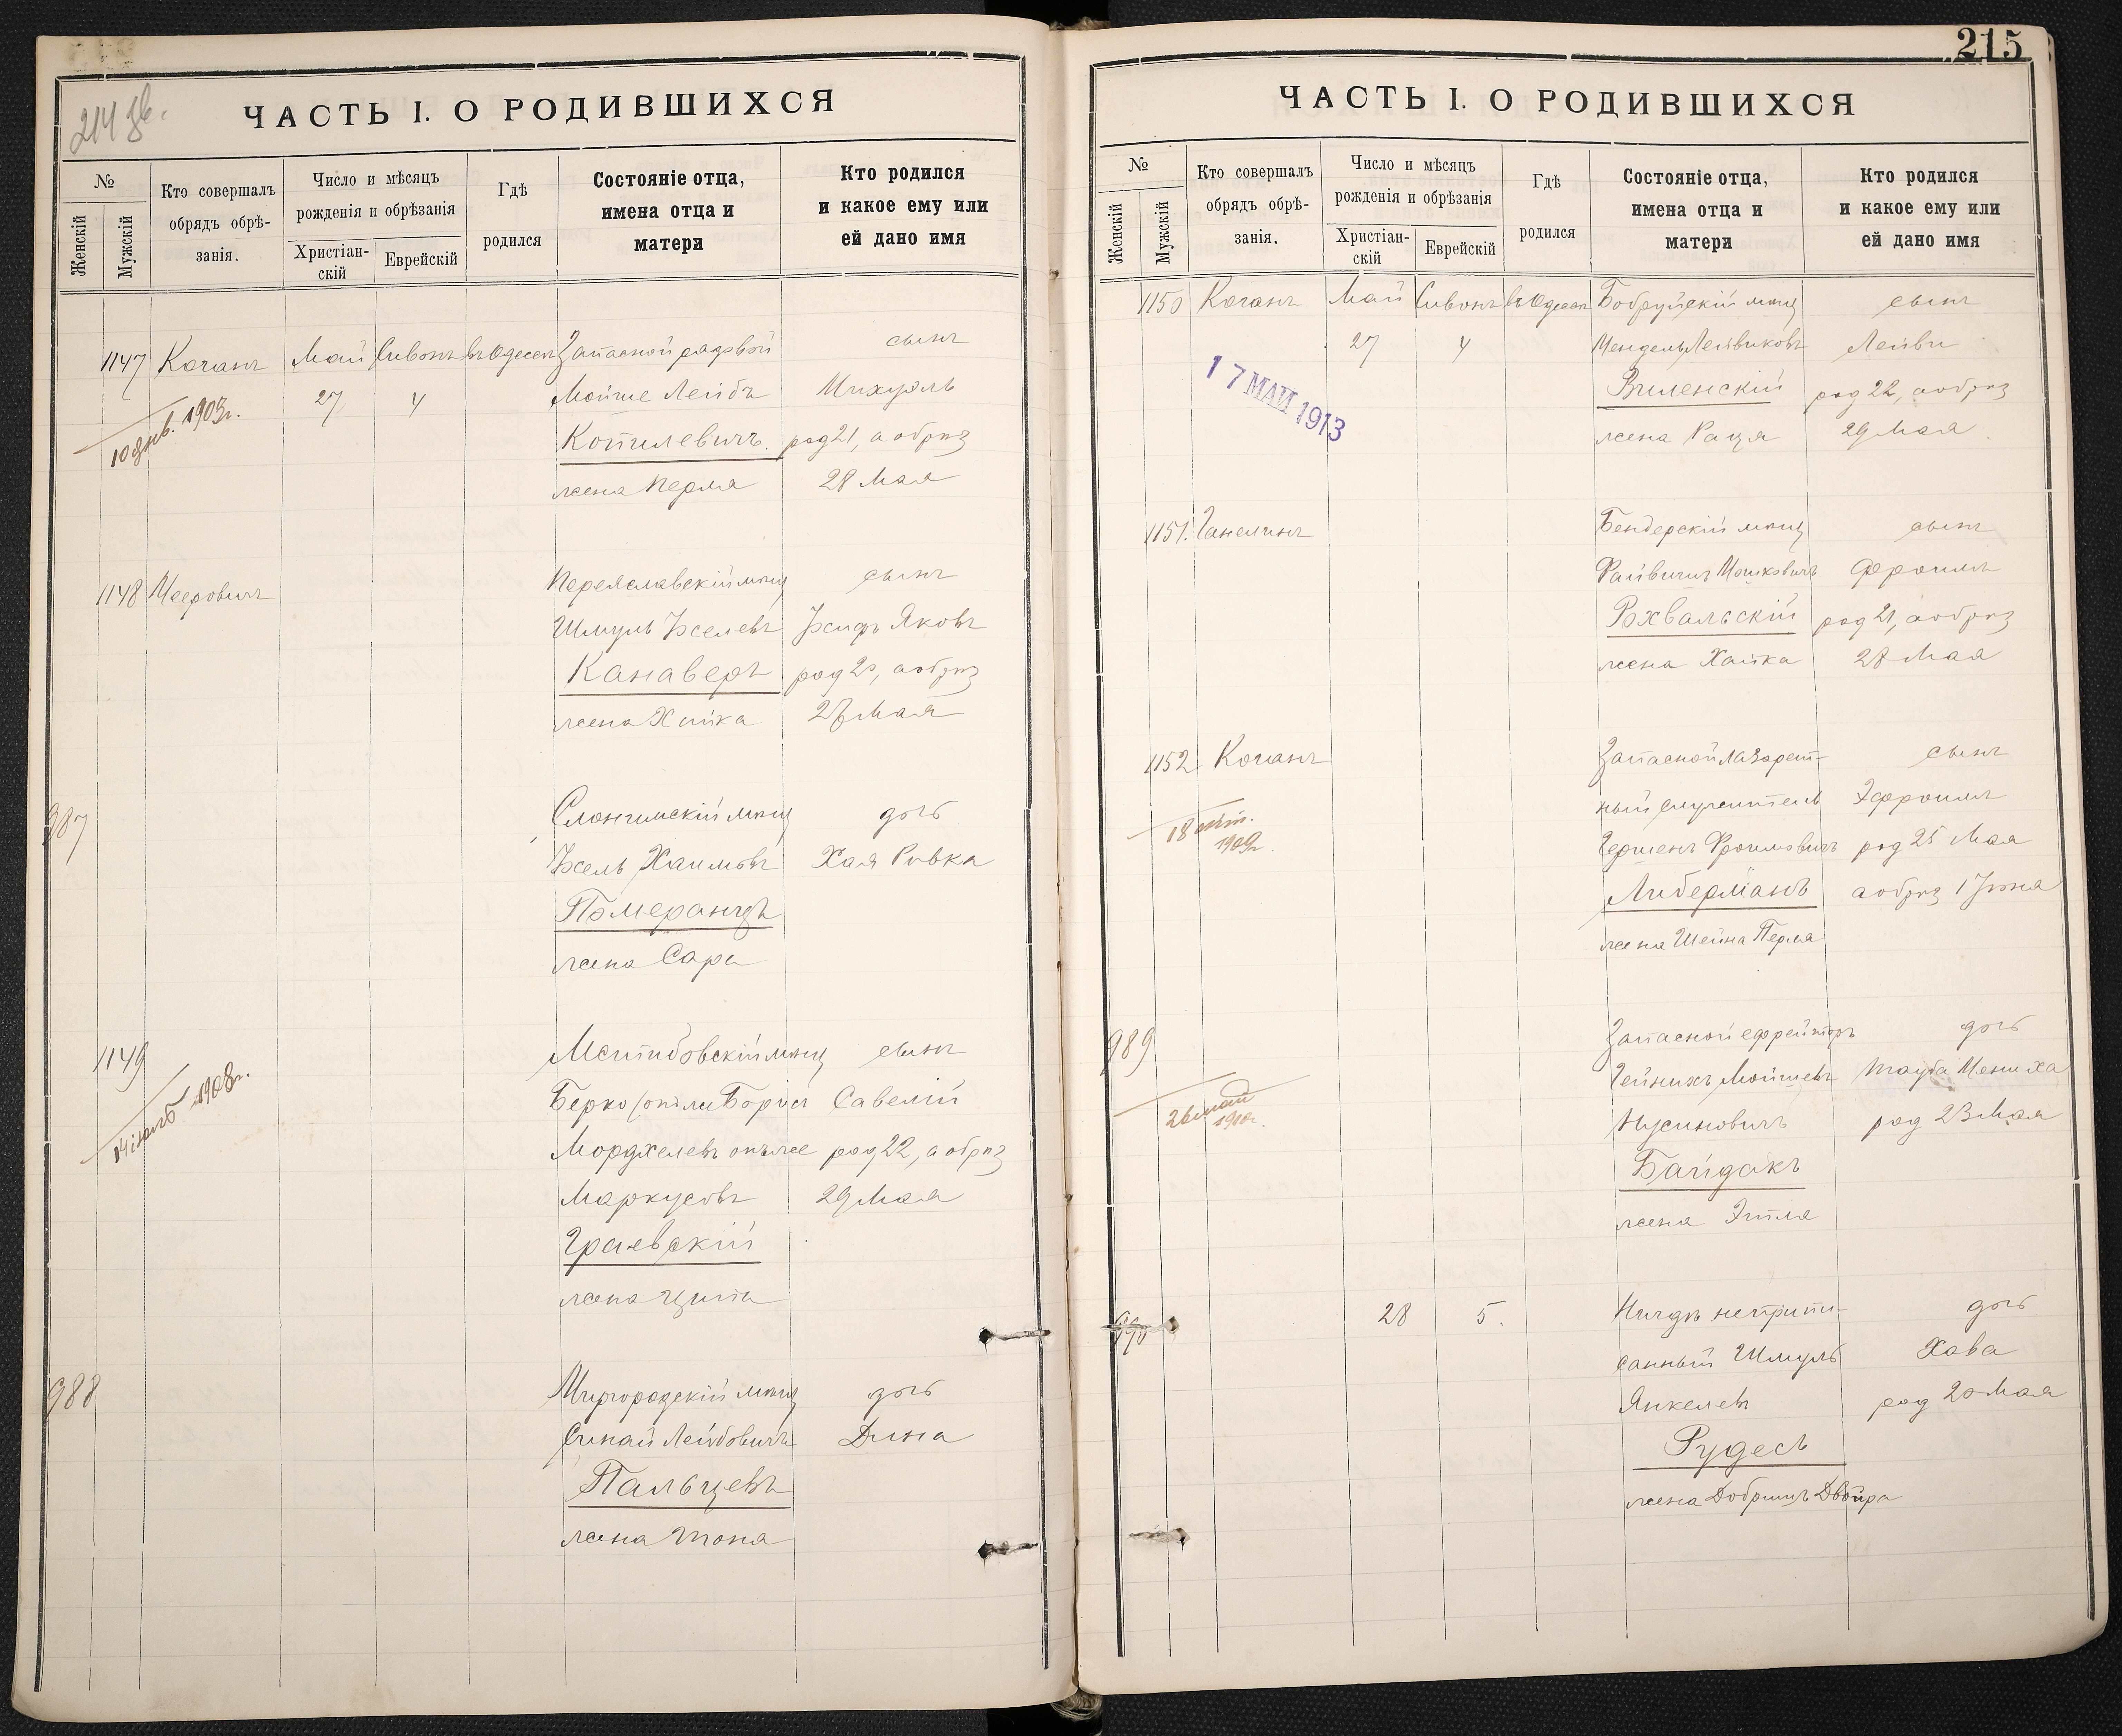 214 зв.
ЧАСТЬ I. О РОДИВШИХСЯ
№
Женскій
Мужскій
Кто совершалъ
обрядъ обрѣ-
занія.
Число и мѣсяцъ
рожденія и обрѣзанія
Христіан-
скій
Еврейскій
Гдѣ
родился
Состояніе отца,
имена отца и
матери
Кто родился
и какое ему или
ей дано имя
1147 Коганъ Май Сивонъ въ Одессѣ Запасной рядовой сынъ
27 4 Мойше Лейбъ Михуэль
10 янв. 1903г.
Копилевичъ род 21, а обрѣз
жена Перля 28 Мая
1148 Мееровичъ Переяславскій мѣщ сынъ
Шмуль Іоселевъ Іосифъ Яковъ
Канаверъ род 20, а обрѣз
жена Хайка 27 Мая
987 Слонимскій мѣщ дочь
Іосель Хаимовъ Хая Ривка
Померанцъ
жена Сара
1149 Мстибовскій мѣщ сынъ
14 іюль 1908г.
Берко (онъ же Борисъ Савелій
Мордхелевъ онъ же род 22, а обрѣз
Маркусовъ 29 Мая
Граевскій
жена Ципа
988 Миргородскій мѣщ дочь
Синай Лейбовичъ Дина
Пальцевъ
жена
215
ЧАСТЬ I. О РОДИВШИХСЯ
№
Женскій
Мужскій
Кто совершалъ
обрядъ обрѣ-
занія.
Число и мѣсяцъ
рожденія и обрѣзанія
Христіан-
скій
Еврейскій
Гдѣ
родился
Состояніе отца,
имена отца и
матери
Кто родился
и какое ему или
ей дано имя
1150 Коганъ Май Сивонъ въ Одессѣ Бобруйскій мѣщ сынъ
27 4 Мендель Лейвиковъ Лейви
17 МАЙ 1913
Виленскій род 22, а обрѣз
жена Раця 29 Мая
1151. Ганелинъ Бендерскій мѣщ сынъ
Файвишъ Мошковичъ Фроимъ
Вхвальскій род 21, а обрѣз
жена Хайка 28 Мая
1152 Коганъ Запасной лазарет- сынъ
ный служитель Эфроимъ
18
1909г.
Гершенъ Фроимовичъ род 25 Мая
Либерманъ а обрѣз 1 Іюня
жена Шейна Перля
989 Запасной ефрейторъ дочь
Гейнихъ Мойшевъ Тауба Мениха
26 май
1910г.
Нусиновичъ род 23 Мая
Байдакъ
жена Этля
990 28 5. Нигдѣ неприпи- дочь
санный Шмуль Хава
Янкелевъ род 20 Мая
Рудесъ
жена Добришъ Двойра